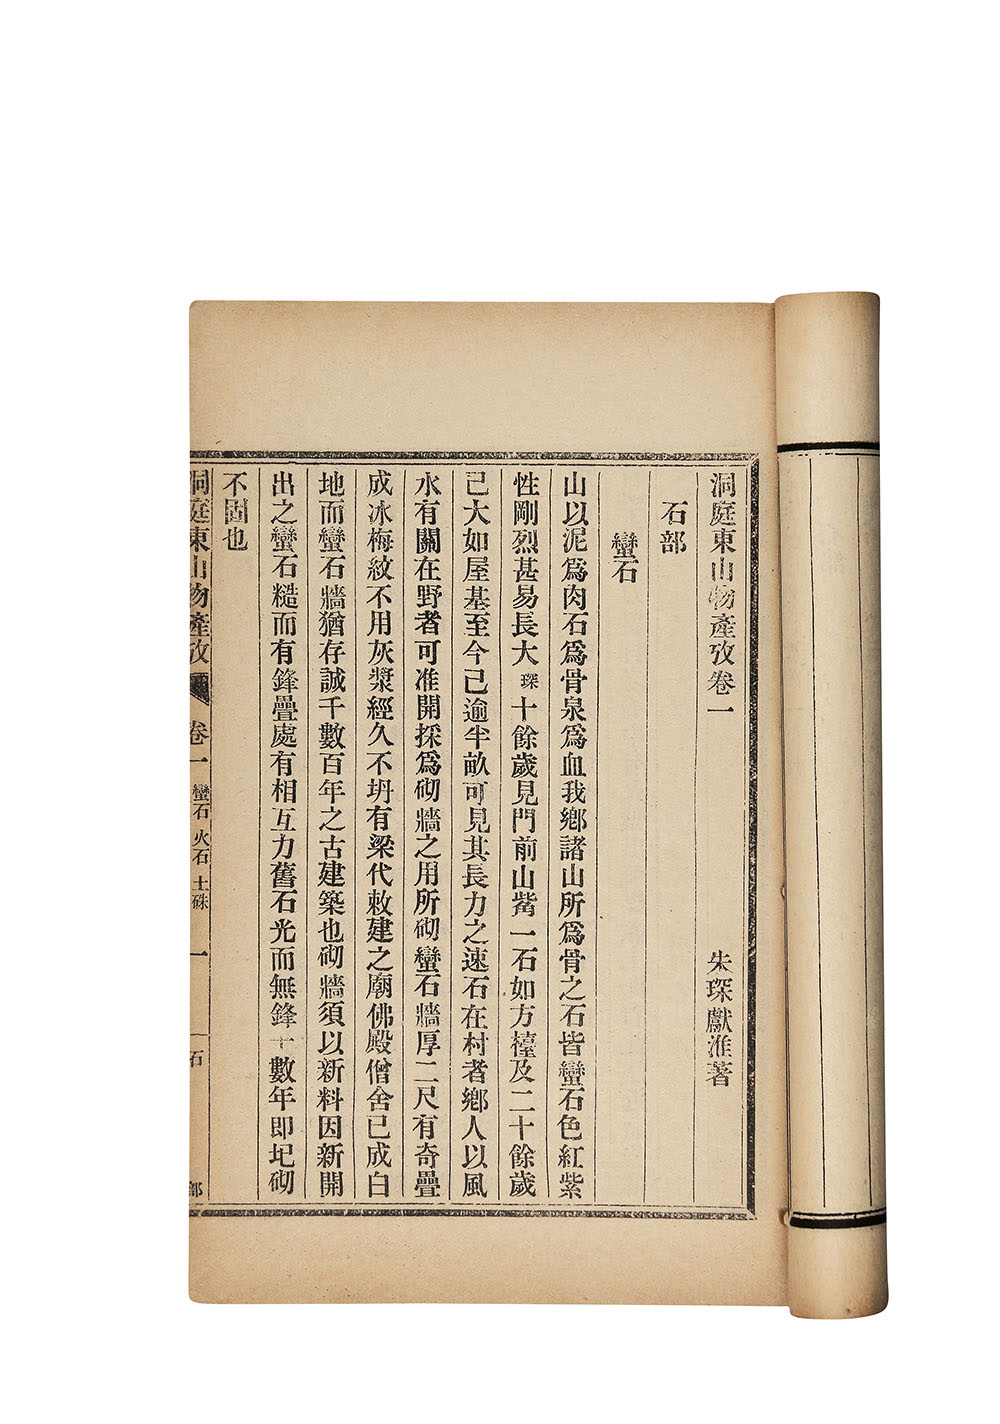 洞庭東山物產攷卷一　朱琛獻淮著
石部
蠻石
山以泥爲肉石爲骨泉爲血我鄉諸山所爲骨之石皆蠻石色紅紫
性剛烈甚易長大琛十餘歲見門前山觜一石如方檯及二十餘歲
已大如屋基至今已逾半畝可見其長力之速石在村者鄉人以風
水有關在野者可准開採爲砌牆之用所砌蠻石牆厚二尺有奇疊
成冰梅紋不用灰漿經久不坍有梁代敕建之廟佛殿僧舍已成白
地而蠻石牆猶存誠千數百年之古建築也砌牆須以新料因新開
出之蠻石糙而有鋒疊處有相互力舊石光而無鋒十數年即圮砌
不固也
洞庭東山物產攷　卷一　蠻石　火石　土硃　一　石部